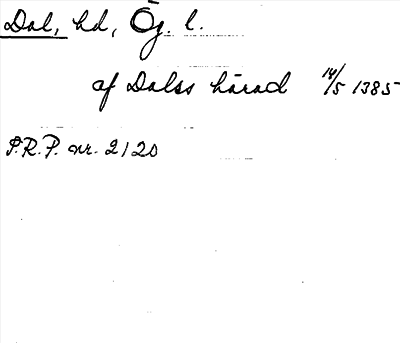 Dal, hd, Ög. l.
af Dalss härad 14/5 1385
P.R.P. nr. 2120